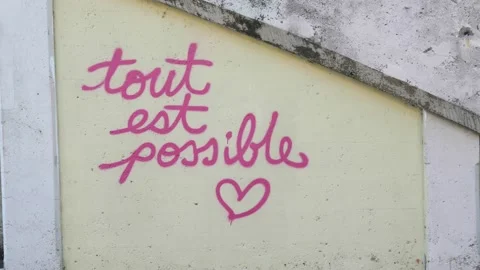 tout
est
possible